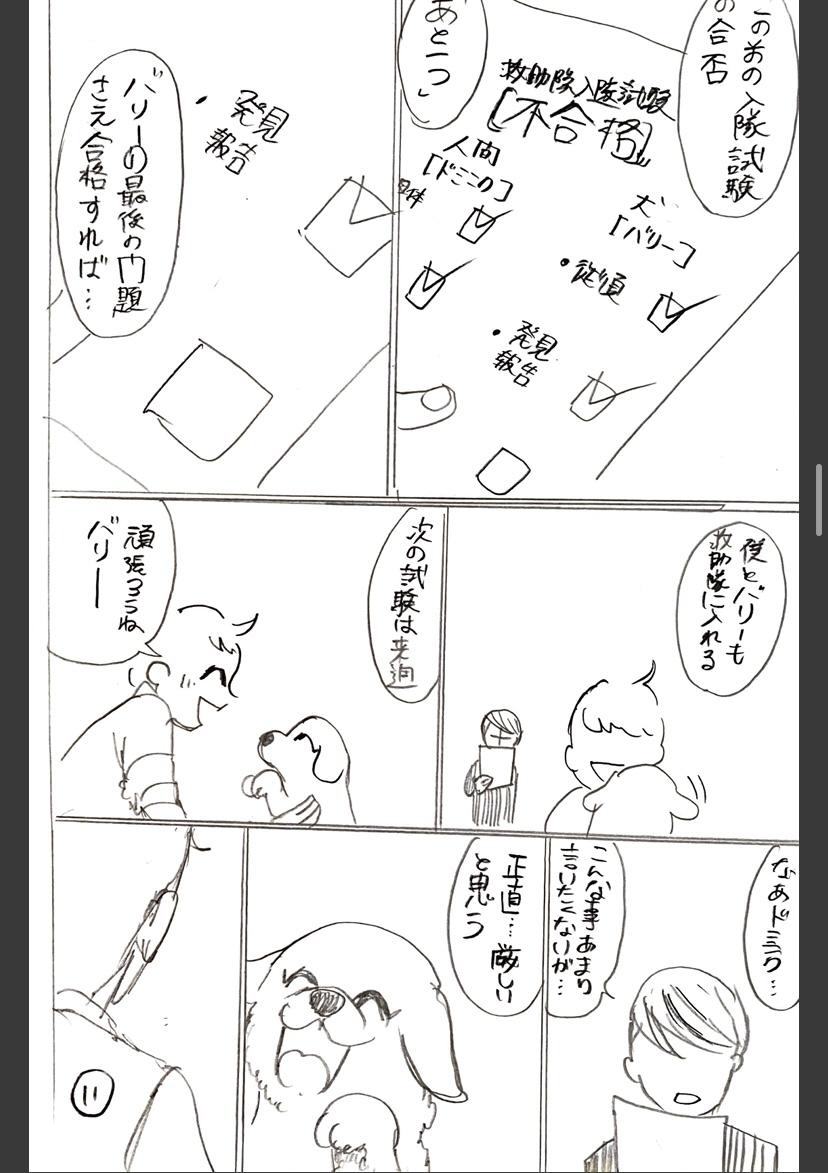 この前の入隊試験
の合否
救助隊入隊試験
[不合格]
犬
[バリー]
・従順
・発見
報告
人間
[ドミニク]
あと一つ
・発見
報告
バリーの最後の問題
さえ合格すれば…
僕とバリーも
救助隊に入れる
次の試験は来週
頑張ろうね
バリー
なあドミニク…
こんな事あまり
言いたくないが…
正直…厳しい
と思う
11